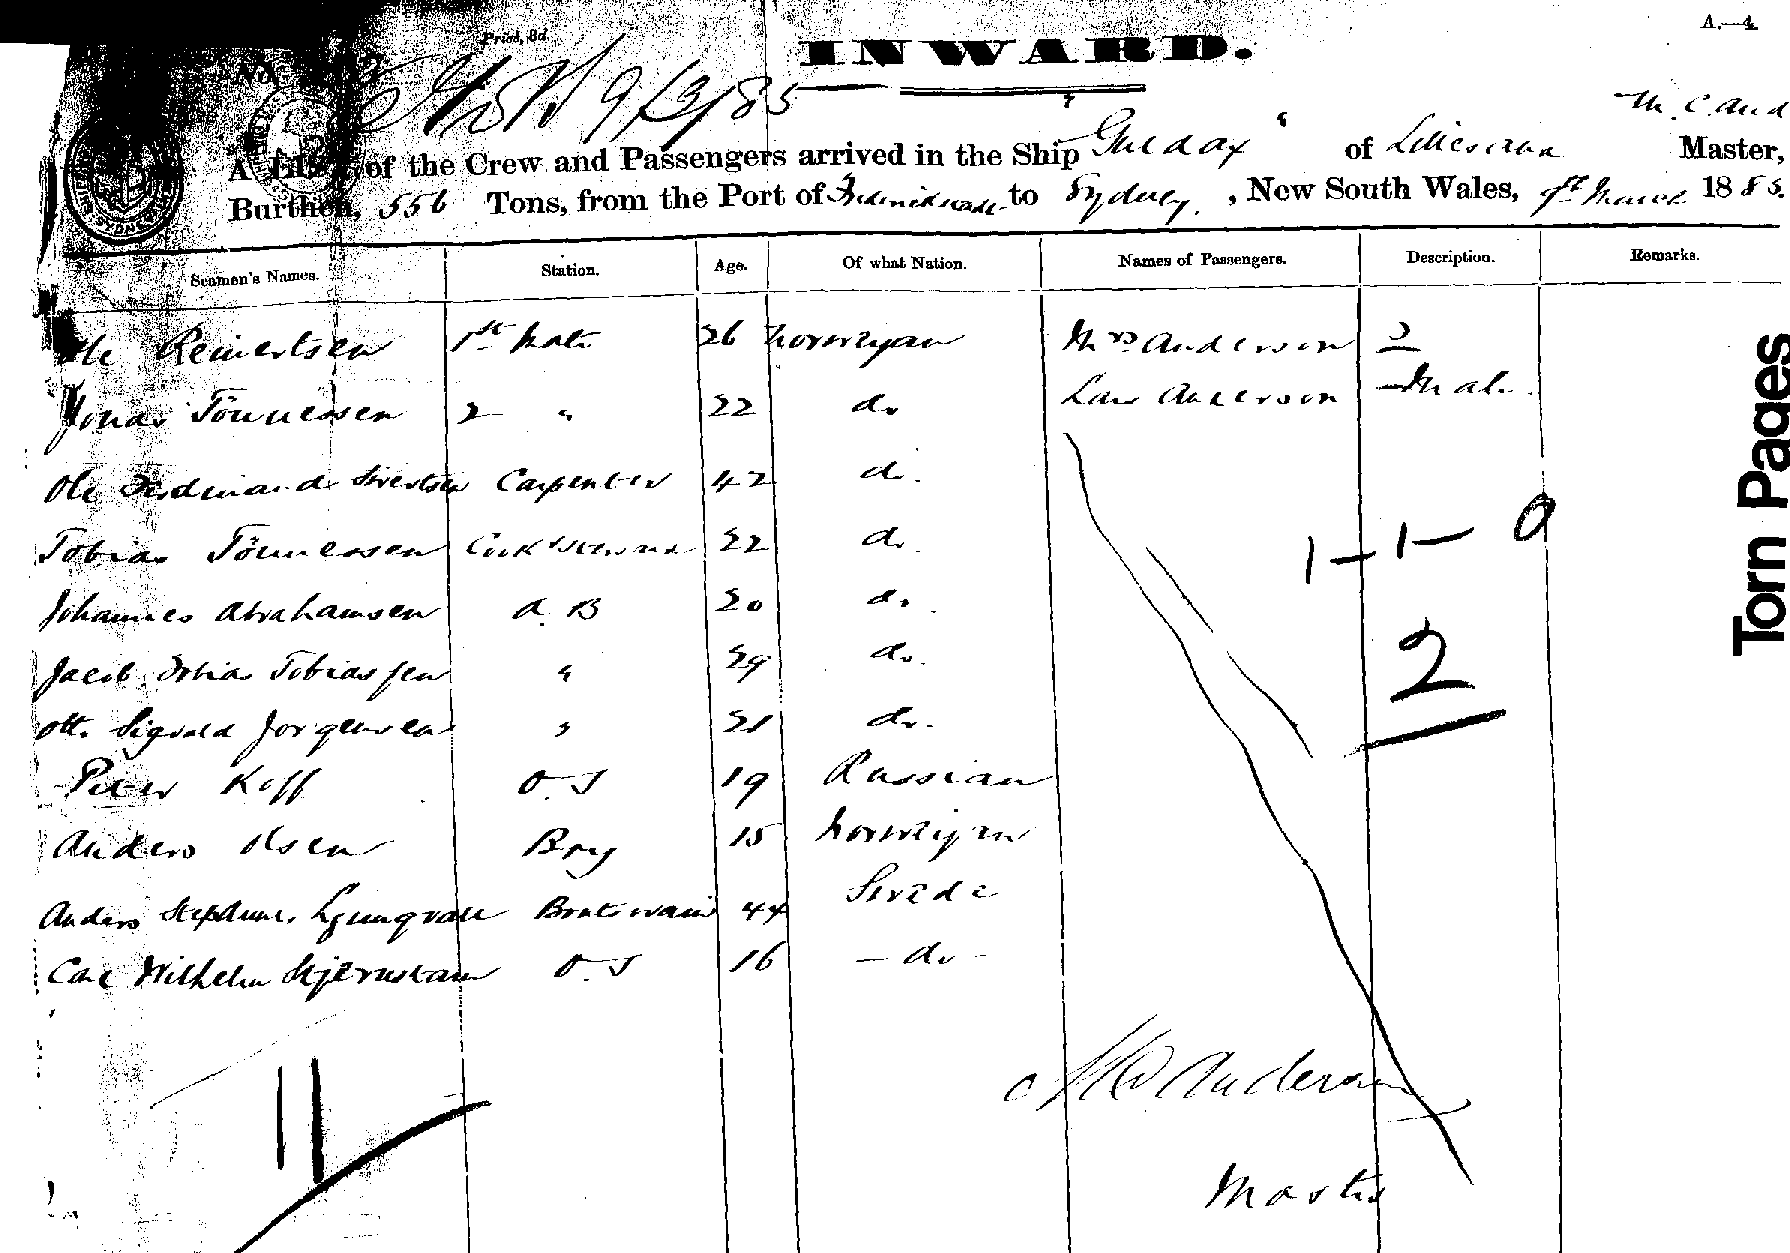 A.—4
Price, 3d.
INWARD.
No.
9/3/85
A List of the Crew and Passengers arrived in the Ship "Guldax" of Lillesand Master,
Burthen, 556 Tons, from the Port of to Sydney, New South Wales, 9th March 1885.
Seamen's Names. Station. Age. Of what Nation. Names of Passengers. Description. Remarks.
Ole Reinertsen 1st Mate 26 Norwegan Mrs Anderson
Jonas Tönnessen 2 " 22 do Lars Anderson Male
Ole Ferdinand Sivertsen Carpenter 42 do.
Tobias Tönnessen Cook & Steward 22 do.
Johannes Abrahamsen A.B 20 do.
Jacob Tobias Tobiassen " 29 do.
Otto Sigvald Jorgensen " 21 do.
Peter Koff O.S 19 Russian
Anders Olsen Boy 15 Norwegian
Anders Ljungvall Boatswain 44 Swede
Carl Wilhelm Stjernstam O.S 16 — do —
1 — 1 — 0
2
11
Anderson
Master
Torn Pages